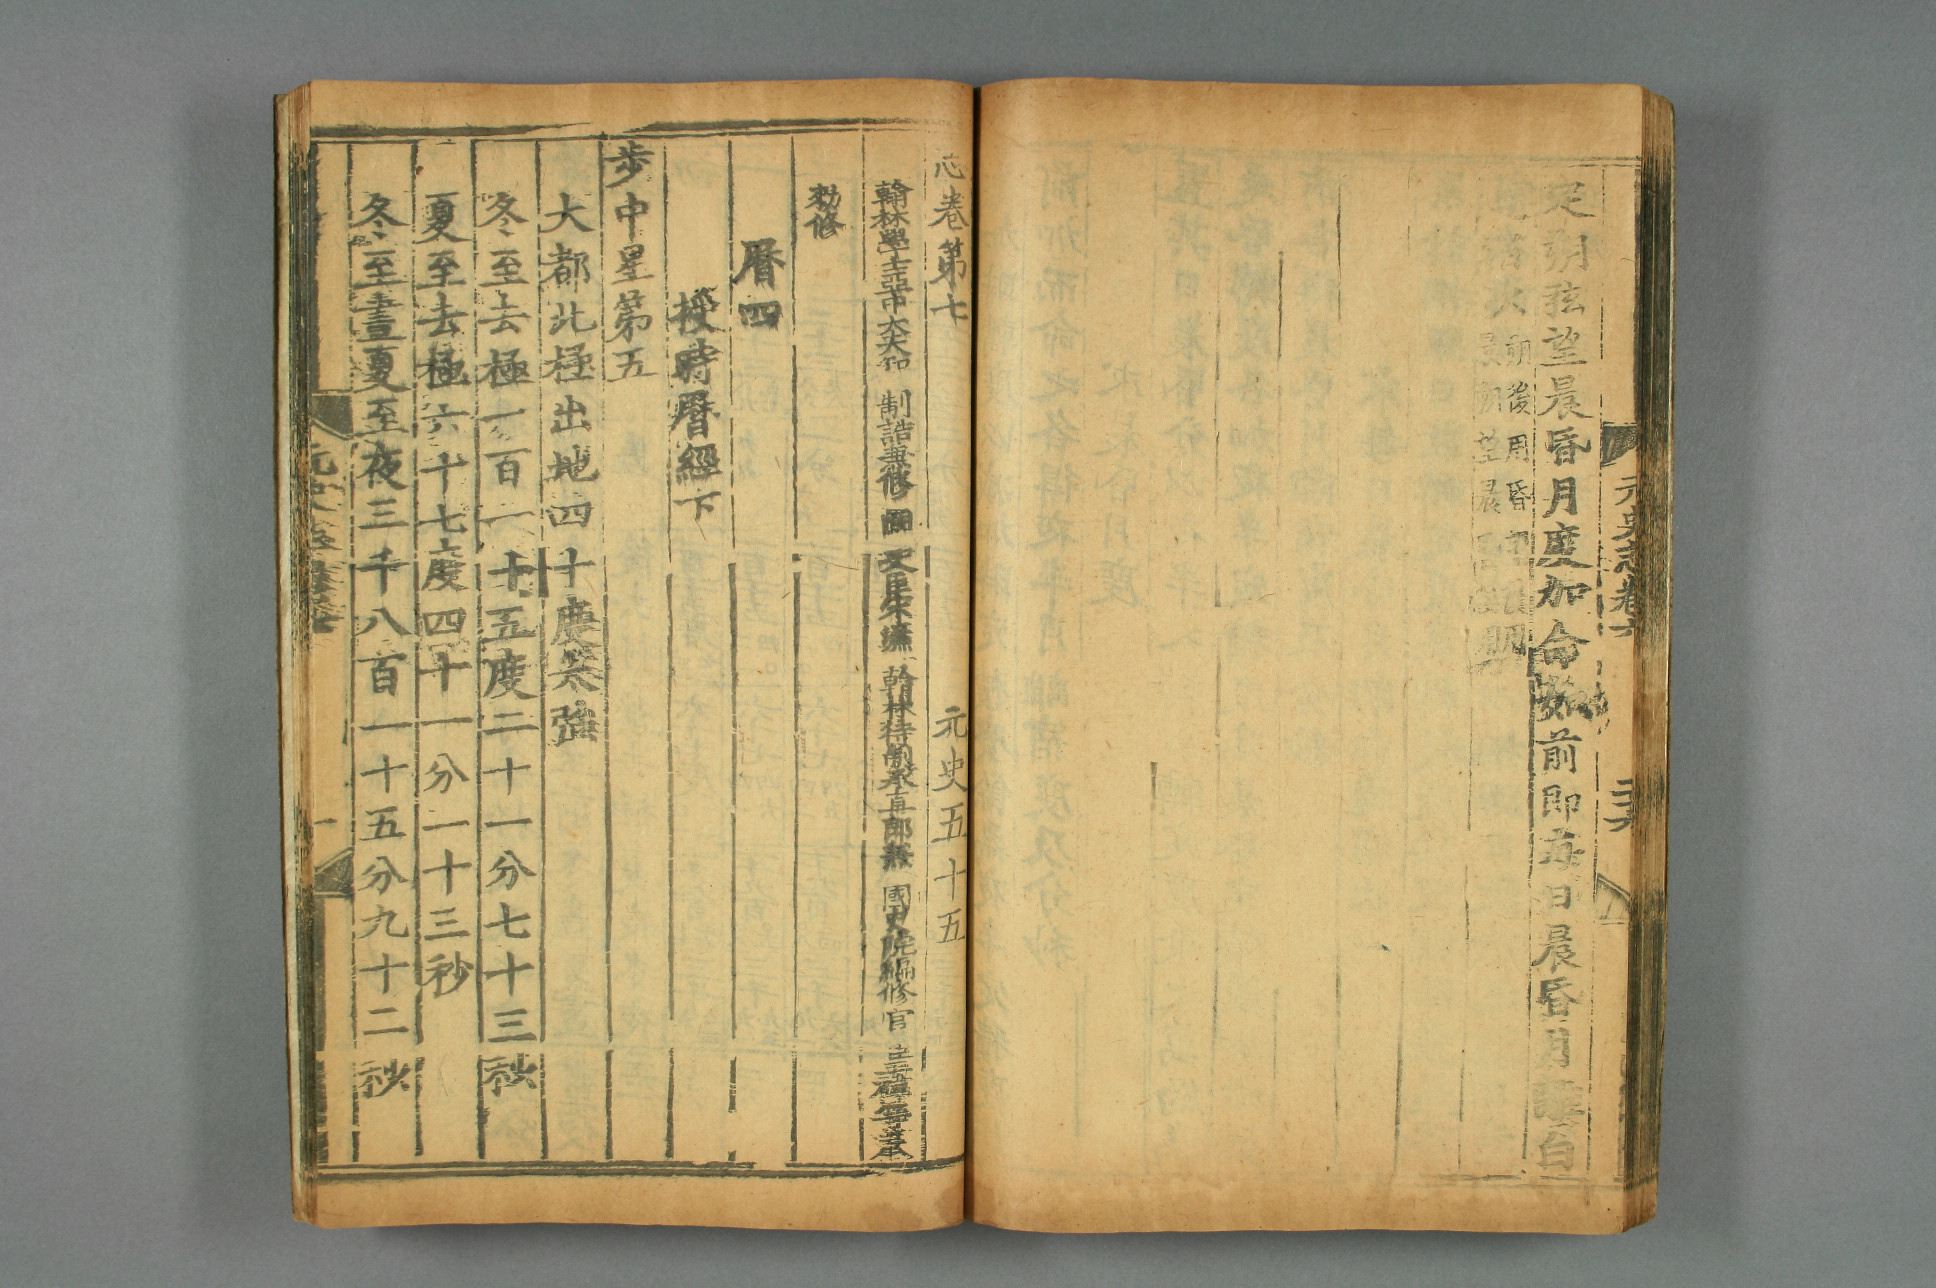 元史志卷六
二十六
定朔弦望晨昏月度加命如前即每日晨昏月
朔後用昏
朔望晨
志卷第七 元史五十五
翰林學士亞中大夫知 制誥兼修國史臣宋濂 翰林待制承直郎兼 國史院編修官臣王禕等奉
勑修
曆四
授時曆經下
步中星第五
大都北極出地四十度太強
冬至去極一百一十五度二十一分七十三秒
夏至去極六十七度四十一分一十三秒
冬至晝夏至夜三千八百一十五分九十二秒
一